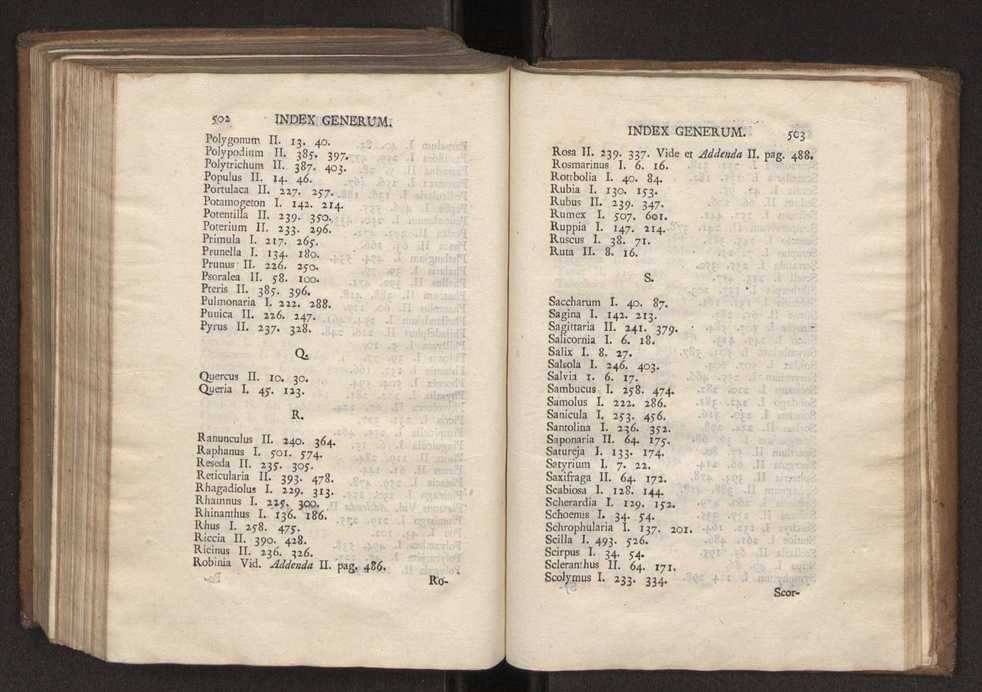 502 INDEX GENERUM.
Polygonum II. 13. 40.
Polypodium II. 385. 397.
Polytrichum II. 387. 403.
Populus II. 14. 46.
Portulaca II. 227. 257.
Potamogeton I. 142. 214.
Potentilla II. 239. 350.
Poterium II. 233. 296.
Primula I. 217. 265.
Prunella I. 134. 180.
Prunus II. 226. 250.
Psoralea II. 58. 100.
Pteris II. 385. 396.
Pulmonaria I. 222. 288.
Punica II. 226. 247.
Pyrus II. 237. 328.
Q.
Quercus II. 10. 30.
Queria I. 45. 123.
R.
Ranunculus II. 240. 364.
Raphanus I. 501. 574.
Reseda II. 235. 305.
Reticularia II. 393. 478.
Rhagadiolus I. 229. 313.
Rhamnus I. 225. 300.
Rhinanthus I. 136. 186.
Rhus I. 258. 475.
Riccia II. 390. 428.
Ricinus II. 236. 326.
Robinia Vid. Addenda II. pag. 486.
Ro-
INDEX GENERUM. 503
Rosa II. 239. 337. Vide et Addenda II. pag. 488.
Rosmarinus I. 6. 16.
Rottbolia I. 40. 84.
Rubia I. 130. 153.
Rubus II. 239. 347.
Rumex I. 507. 601.
Ruppia I. 147. 214.
Ruscus I. 38. 71.
Ruta II. 8. 16.
S.
Saccharum I. 40. 87.
Sagina I. 142. 213.
Sagittaria II. 241. 379.
Salicornia I. 6. 18.
Salix I. 8. 27.
Salsola I. 246. 403.
Salvia I. 6. 17.
Sambucus I. 258. 474.
Samolus I. 222. 286.
Sanicula I. 253. 456.
Santolina I. 236. 352.
Saponaria II. 64. 175.
Satureja I. 133. 174.
Satyrium I. 7. 22.
Saxifraga II. 64. 172.
Scabiosa I. 128. 144.
Scherardia I. 129. 152.
Schoenus I. 34. 54.
Schrophularia I. 137. 201.
Scilla I. 493. 526.
Scirpus I. 34. 54.
Scleranthus II. 64. 171.
Scolymus I. 233. 334.
Scor-